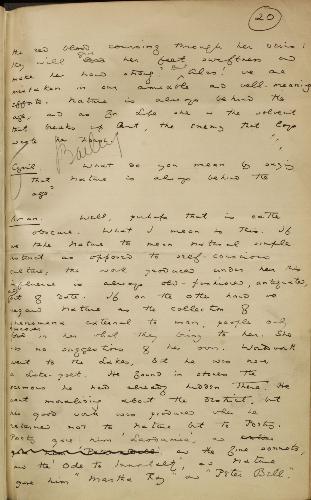 20
the red blood coursing through her veins!
they will give her feet swiftness and
make her hand strong". Alas! we are
mistaken in our amiable and well-meaning
efforts. Nature is always behind the
age, and as for Life she is the solvent
that breaks up Art, the enemy that lays
waste her House.
Cyril. What do you mean by saying
that Nature is always behind the
age?
Vivian. Well, perhaps that is rather
obscure. What I mean is this. If
we take Nature to mean natural simple
instinct as opposed to self-conscious
culture, the work produced under this
influence is always old-fashioned, antiquated,
and out of date. If on the other hand we
regard Nature as the collection of
phenomena external to man, people only
discover in her what they bring to her. She
has no suggestions of her own. Wordsworth
went to the Lakes, but he was never
a Lake-poet. He found in stones the
sermons he had already hidden there. He
went moralising about the District, but
his good work was produced when he
returned not to Nature but to Poetry.
Poetry gave him 'Laodamia', and
the fine sonnets,
and the 'Ode to Immortality', and Nature
gave him "Martha Ray" and "Peter Bell."